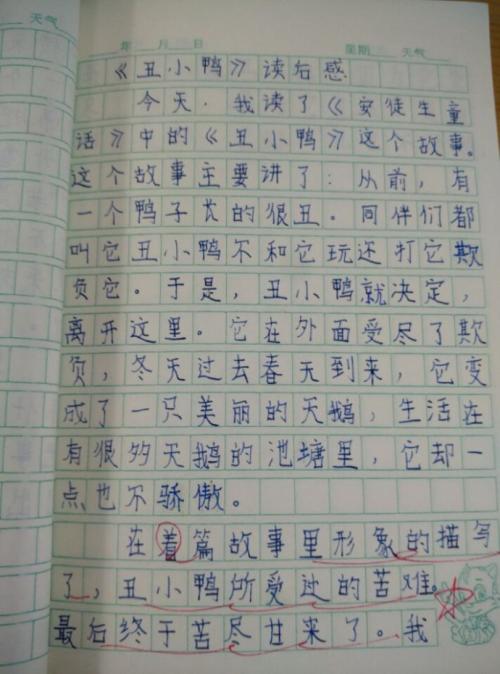 天气
年 月 日 星期 天气
《丑小鸭》读后感
今天，我读了《安徒生童
话》中的《丑小鸭》这个故事。
这个故事主要讲了：从前，有
一个鸭子长的很丑。同伴们都
叫它丑小鸭不和它玩还打它欺
负它。于是，丑小鸭就决定，
离开这里。它在外面受尽了欺
负，冬天过去春天到来，它变
成了一只美丽的天鹅，生活在
有很多天鹅的池塘里，它却一
点也不骄傲。
在着篇故事里形象的描写
了，丑小鸭所受过的苦难。
最后终于苦尽甘来了。我